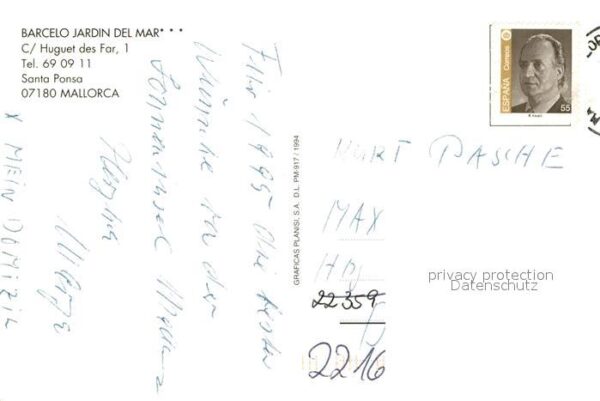 BARCELO JARDIN DEL MAR***
C/ Huguet des Far, 1
Tel. 69 09 11
Santa Ponsa
07180 MALLORCA
Für 1995 die besten
Wünsche von der
Sonneninsel
X MEIN DOMIZIL
GRAFICAS PLANISI, S.A. D.L. PM-917 / 1994
ESPAÑA Correos
55
KURT PASCHE
MAX
22359
2216
privacy protection
Datenschutz